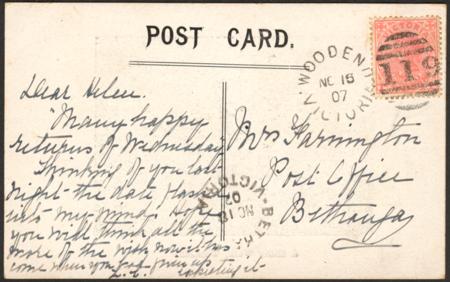 POST CARD.
WOODEND
NO 15
07
VICTORIA
VICTORIA
119
Dear Helen.
Many happy
returns of Wednesday
Thinking of you last
night the date flashed
into my mind. Hope
you will think all the
more of the wish now it has
come when you
expecting it
Mrs Farrington
Post Office
Bethanga
BETH
NO 18
07
VICTORIA